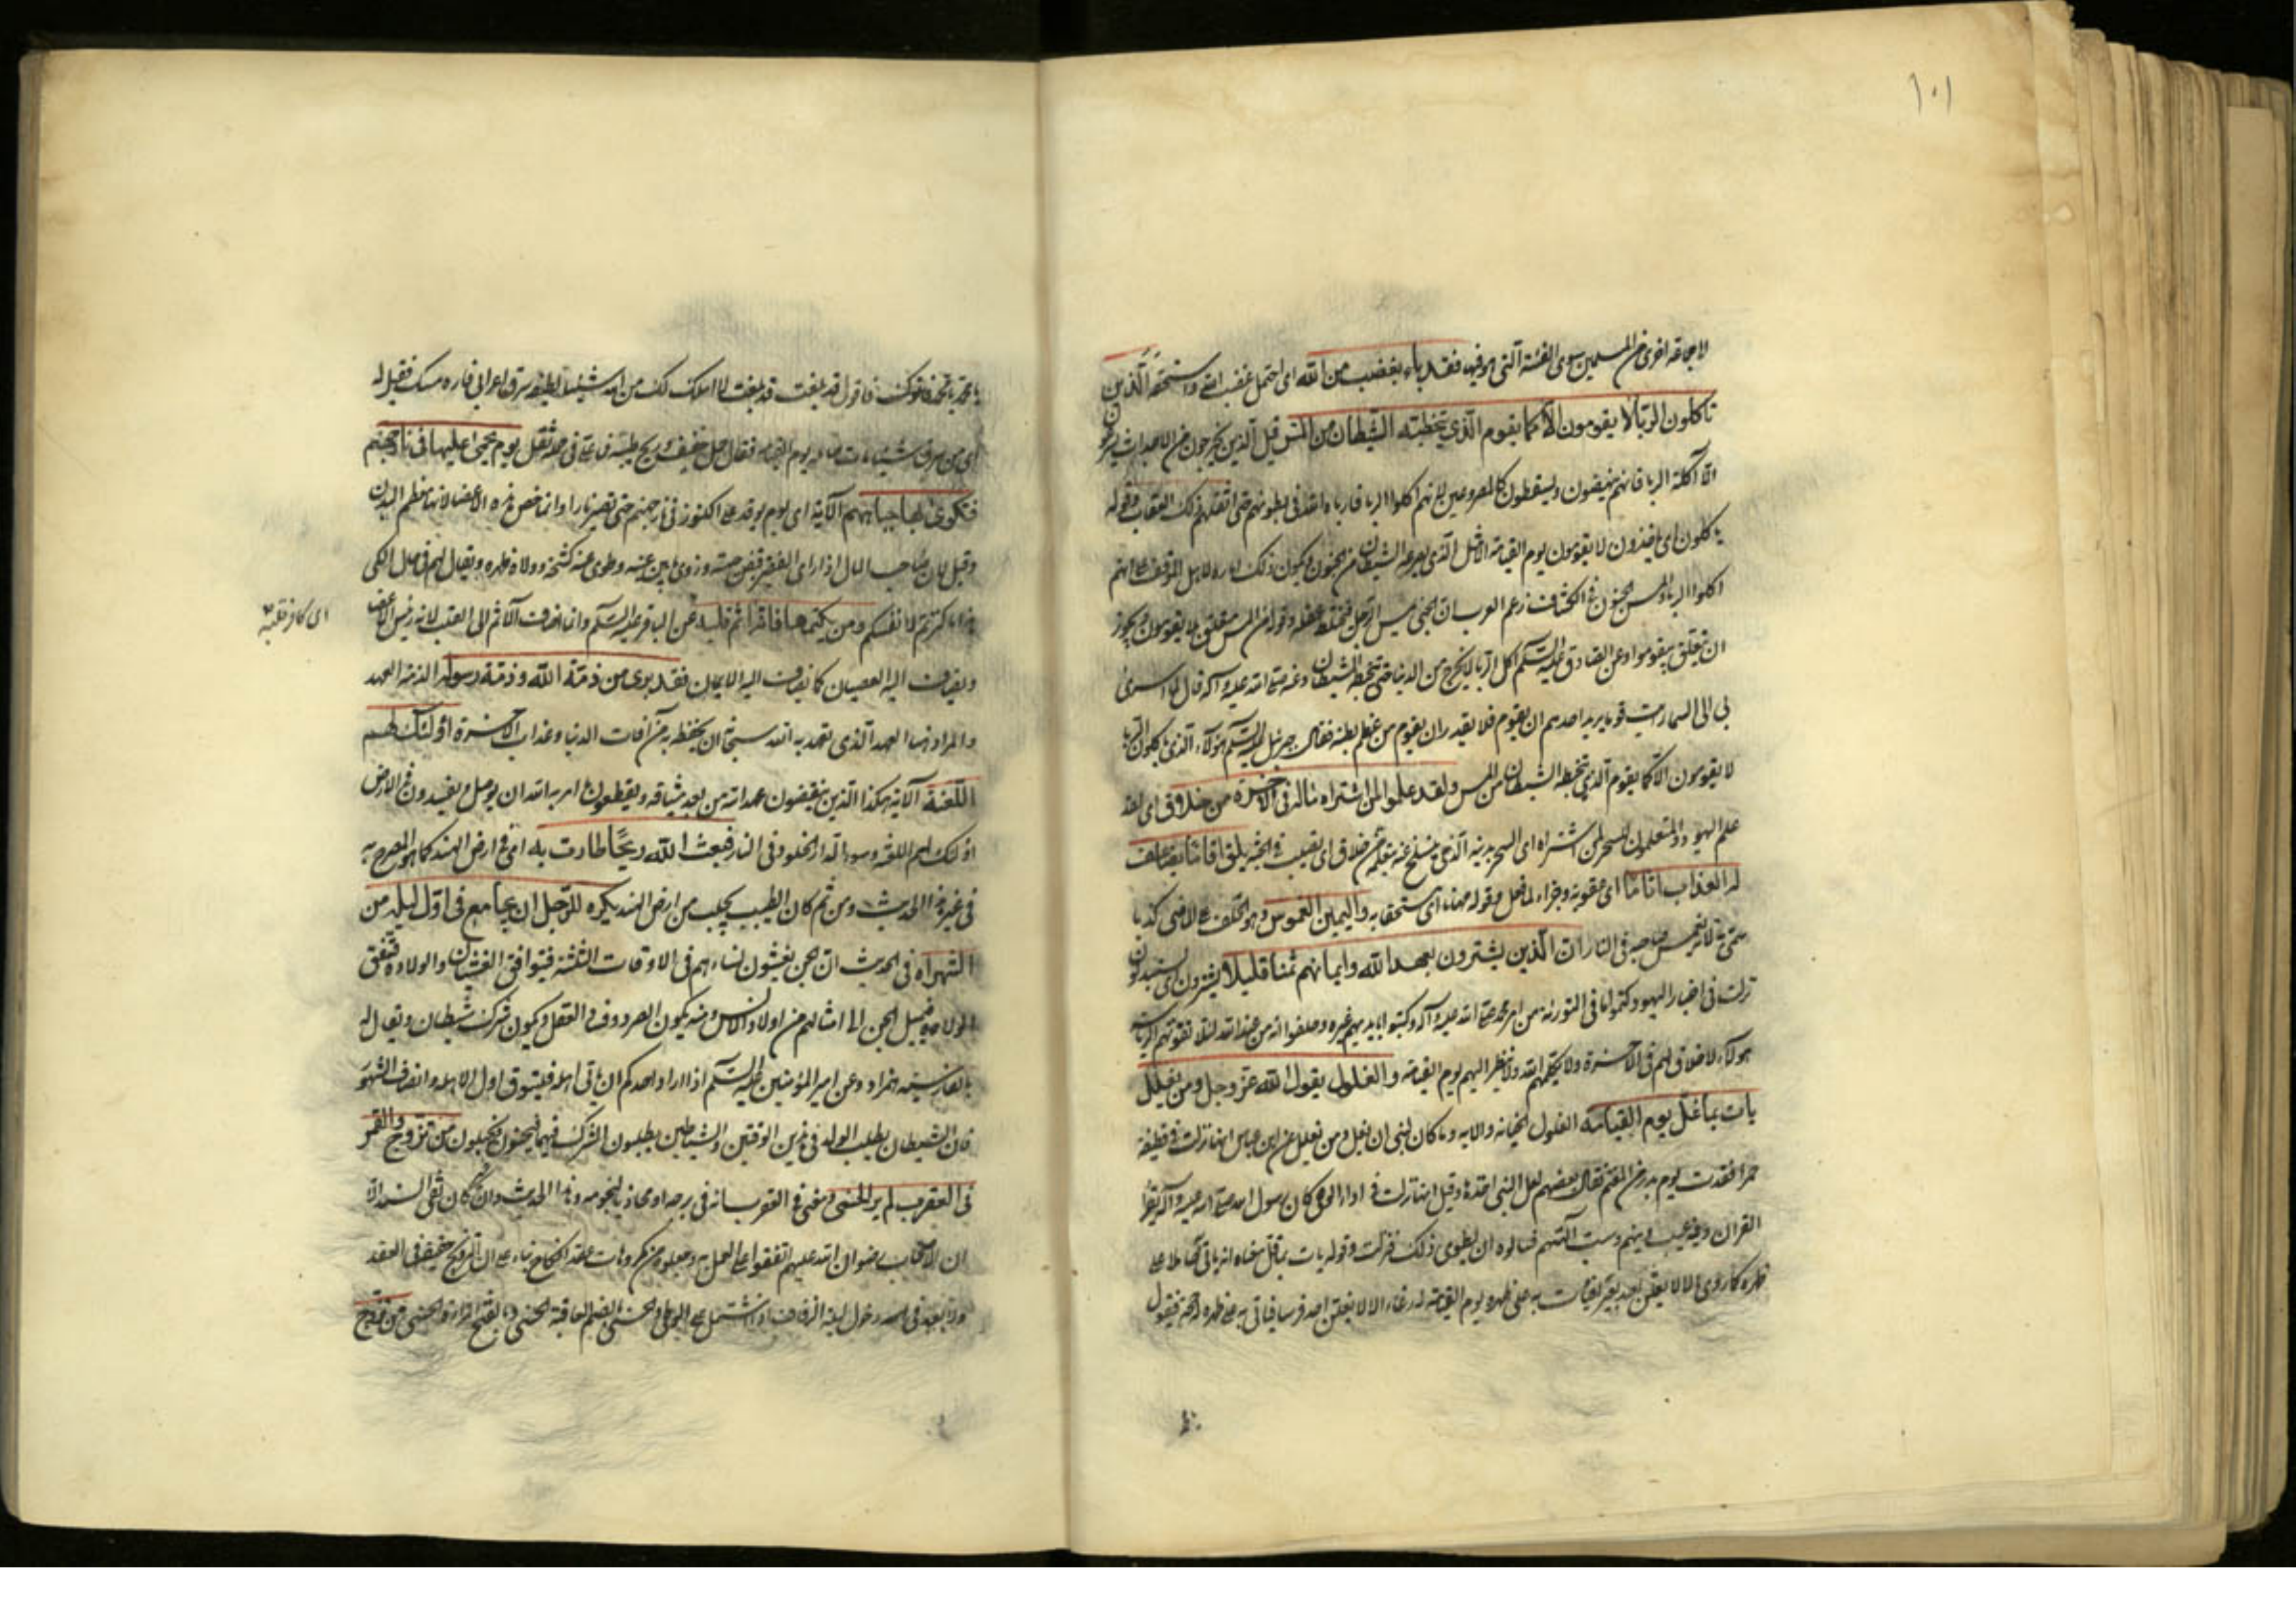 ١٠١
لا جماعة اخرى من المسلمين سوى الفئة التى هو فيها فقد باء بغضب من الله اى احتمل غضب الله واستحقه الذين
ياكلون الربا لا يقومون الا كما يقوم الذي يتخبطه الشيطان من المس قيل الذين يخرجون من الاجداث
الا آكلة الربا فانهم ينهضون ويسقطون كالمصروعين لانهم اكلوا الربا فارباه الله فى بطونهم حتى اثقلهم ذلك العقاب وقوله
ياكلون اى ياخذون لا يقومون يوم القيمة الا مثل الذي يصرعه الشيطان من الجنون فيكون ذلك امارة لاهل الموقف على انهم
اكلوا الربا والمس الجنون فى الكشاف زعم العرب ان الجنى يمس الرجل فيختلط عقله وقوله من المس متعلق بلا يقومون ويجوز
ان يتعلق بيقوم وعن الصادق عليه السلم آكل الربا لا يخرج من الدنيا حتى يتخبطه الشيطان وعنه صلى الله عليه وآله قال لما اسرى
بى الى السماء رايت قوما يريد احدهم ان يقوم فلا يقدر ان يقوم من عظم بطنه فقال جبرئيل عليه السلم هؤلاء الذين ياكلون الربا
لا يقومون الا كما يقوم الذي يتخبطه الشيطان من المس ولقد علموا لمن اشتراه ماله فى الآخرة من خلاق اى لقد
علم اليهود والمتعلمون للسحر لمن اشتراه اى السحر بدينه الذي ينسلخ عنه بتعلمه من خلاق اى نصيب فى الجنة يلق اثاما يضاعف
له العذاب اثاما اى عقوبة وجزاء لما فعل وقوله مهانا اى مستحقا به واليمين الغموس وهو الحلف على الماضى كذبا
سمى به لانه يغمس صاحبه فى النار ان الذين يشترون بعهد الله وايمانهم ثمنا قليلا يشترون اى يستبدلون
نزلت فى احبار اليهود وكتموا ما فى التورية من امر محمد صلى الله عليه وآله وكتبوا بايديهم غيره وحلفوا انه من عند الله لئلا تفوتهم الرياسة
هؤلاء لا خلاق لهم فى الآخرة ولا يكلمهم الله ولا ينظر اليهم يوم القيمة والغلول يقول الله عز وجل ومن يغلل
يات بما غل يوم القيامة الغلول الخيانة والآية وما كان لنبى ان يغل ومن يغلل عن ابن عباس انها نزلت فى قطيفة
حمرا فقدت يوم بدر من المغنم فقال بعضهم لعل النبى اخذها وقيل انها نزلت فى اداء الوحى كان رسول الله صلى الله عليه وآله يقرأ
القران وفيه عيب دينهم وسب آلهتهم فسالوه ان يطوى ذلك فنزلت وقوله يات بما غل معناه انه ياتى حاملا على
ظهره كما روى الا لا يغلن احد بعيرا فياتى به على ظهره يوم القيمة له رغاء الا لا يغلن احد فرسا فياتى به على ظهره له حمحمة فيقول
يا محمد يا محمد فاقول قد بلغت قد بلغت لا املك لك من الله شيئا لطيفة سرق اعرابى فارة مسك فقيل له
ان من سرق شيئا يات به يوم القيمة فقال احمل خفيفة ريح طيبة يوم يحمى عليها فى نار جهنم
فتكوى بها جباههم الآية اى يوم يوقد على الكنوز فى نار جهنم حتى تصير نارا وانما خص هذه الاعضاء لانها معظم البدن
وقيل لان صاحب المال اذا راى الفقير قبض جبهته وزوى ما بين عينيه وطوى عنه كشحه وولاه ظهره ويقال لهم فى حال الكى
هذا ما كنزتم لانفسكم ومن يكتمها فانه آثم قلبه عن الباقر عليه السلم وانما اضاف الآثم الى القلب لانه رئيس الاعضاء
اى كافر قلبه
ويضاف اليه العصيان كما يضاف اليه الايمان فقد برى من ذمة الله وذمة رسوله الذمة العهد
والمراد بها العهد الذى تعهد به الله سبحانه ان يحفظه من آفات الدنيا وعذاب الآخرة اولئك لهم
اللعنة الآية هكذا الذين ينقضون عهد الله من بعد ميثاقه ويقطعون ما امر به الله ان يوصل ويفسدون فى الارض
اولئك لهم اللعنة وسوء الدار الخلود فى النار فبعث الله ريحا طارت به اى فى ارض الهند كما هو المصرح به
فى غير هذا الحديث ومن ثم كان الطيب يجلب من ارض الهند يكره للرجل ان يجامع فى اول ليلة من
الشهر اه فى الحديث ان الجن يغشون نساءهم فى الاوقات الثلثة فيتوافق الغشيان والولادة فتفق
فيميل الجن الى امثالهم من اولاد الانس ومنه يكون الصرع وفساد العقل ويكون شرك شيطان ويقال له
بالفارسية همزاد وعن امير المؤمنين عليه السلم اذا اراد احدكم ان ياتى اهله فليتوق اول الاهلة وانصاف الشهور
فان الشيطان يطلب الولد فى هذين الوقتين والشياطين يطلبون الشرك فيهما فيجيئون ويحبلون من تزوج والقمر
فى العقرب لم ير الحسنى معنى فى العقرب انه فى برجه او محاذيا لنجومه وهذا الحديث وان كان نقى السند الا
ان الاصحاب رضوان الله عليهم اتفقوا على العمل به وجعلوه من مكروهات عقد النكاح بناء على ان التزويج حقيقة فى العقد
ولا يبعد فى دخول ليلة الزفاف اذا اشتمل على الوطى والحسنى بالضم العاقبة الحسنى بفتح الراء والحسنى من تزوج